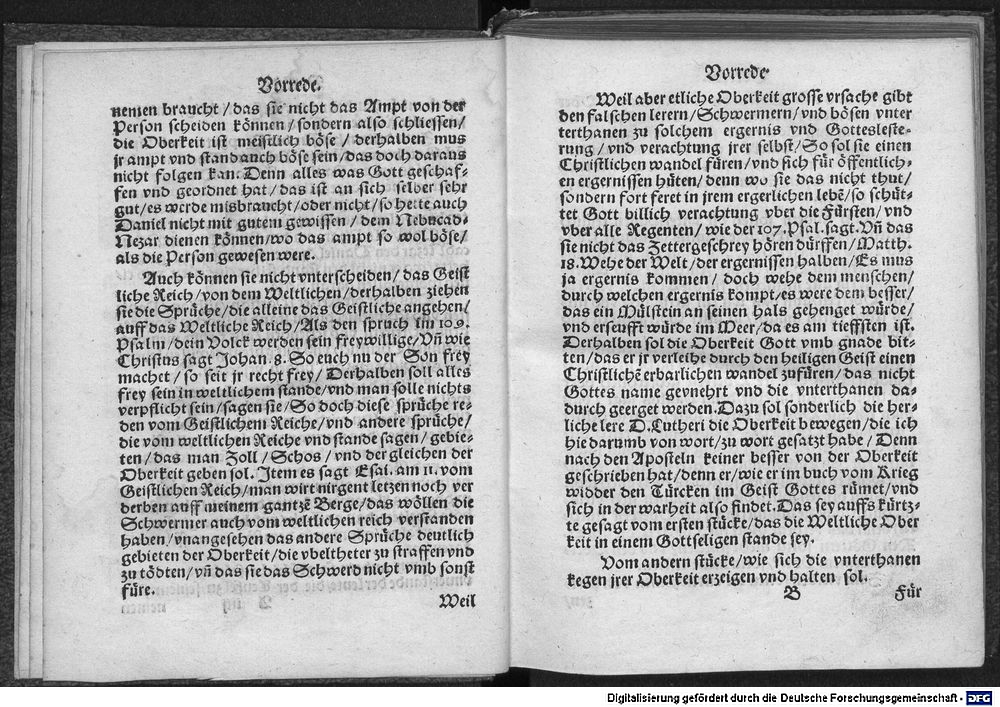 Vorrede.
nemen braucht / das sie nicht das Ampt von der
Person scheiden können / sondern also schliessen /
die Oberkeit ist meistlich böse / derhalben mus
jr ampt vnd stand auch böse sein / das doch daraus
nicht folgen kan: Denn alles was Gott geschaf-
fen vnd geordnet hat / das ist an sich selber sehr
gut / es werde misbraucht / oder nicht / so hette auch
Daniel nicht mit gutem gewissen / dem Nebucad-
Nezar dienen können / wo das ampt so wol böse /
als die Person gewesen were.
Auch können sie nicht vnterscheiden / das Geist
liche Reich / von dem Weltlichen / derhalben ziehen
sie die Sprüche / die alleine das Geistliche angehen /
auff das Weltliche Reich / Als den spruch im 109.
Psalm / dein Volck werden sein freywillige / Vñ wie
Christus sagt Johan. 8. So euch nu der Son frey
machet / so seit jr recht frey / Derhalben soll alles
frey sein in weltlichem stande / vnd man solle nichts
verpflicht sein / sagen sie / So doch diese sprüche re-
den vom Geistlichem Reiche / vnd andere sprüche /
die vom weltlichen Reiche vnd stande sagen / gebie-
ten / das man Zoll / Schos / vnd der gleichen der
Oberkeit geben sol. Item es sagt Esai. am 11. vom
Geistlichen Reich / man wirt nirgent letzen noch ver
derben auff meinem gantzẽ Berge / das wöllen die
Schwermer auch vom weltlichen reich verstanden
haben / vnangesehen das andere Sprüche deutlich
gebieten der Oberkeit / die vbeltheter zu straffen vnd
zu tödten / vñ das sie das Schwerd nicht vmb sonst
füre.
Weil
Vorrede
Weil aber etliche Oberkeit grosse vrsache gibt
den falschen lerern / Schwermern / vnd bösen vnter
terthanen zu solchem ergernis vnd Gottesleste-
rung / vnd verachtung jrer selbst / So sol sie einen
Christlichen wandel füren / vnd sich für öffentlich-
en ergernissen hüten / denn wo sie das nicht thut /
sondern fort feret in jrem ergerlichen lebẽ / so schüt-
tet Gott billich verachtung vber die Fürsten / vnd
vber alle Regenten / wie der 107. Psal. sagt. Vñ das
sie nicht das Zettergeschrey hören dürffen / Matth.
18. Wehe der Welt / der ergernissen halben / Es mus
ja ergernis kommen / doch wehe dem menschen /
durch welchen ergernis kompt / es were dem besser /
das ein Mülstein an seinen hals gehenget würde /
vnd erseufft würde im Meer / da es am tieffsten ist.
Derhalben sol die Oberkeit Gott vmb gnade bit-
ten / das er jr verleihe durch den heiligen Geist einen
Christlichẽ erbarlichen wandel zufüren / das nicht
Gottes name gevnehrt vnd die vnterthanen da-
durch geerget werden. Dazu sol sonderlich die her-
liche lere D. Lutheri die Oberkeit bewegen / die ich
hie darumb von wort / zu wort gesatzt habe / Denn
nach den Aposteln keiner besser von der Oberkeit
geschrieben hat / denn er / wie er im buch vom Krieg
widder den Türcken im Geist Gottes rümet / vnd
sich in der warheit also findet. Das sey auffs kürtz-
te gesagt vom ersten stücke / das die Weltliche Ober
keit in einem Gottseligen stande sey.
Vom andern stücke / wie sich die vnterthanen
kegen jrer Oberkeit erzeigen vnd halten sol.
B Für
Digitalisierung gefördert durch die Deutsche Forschungsgemeinschaft - DFG